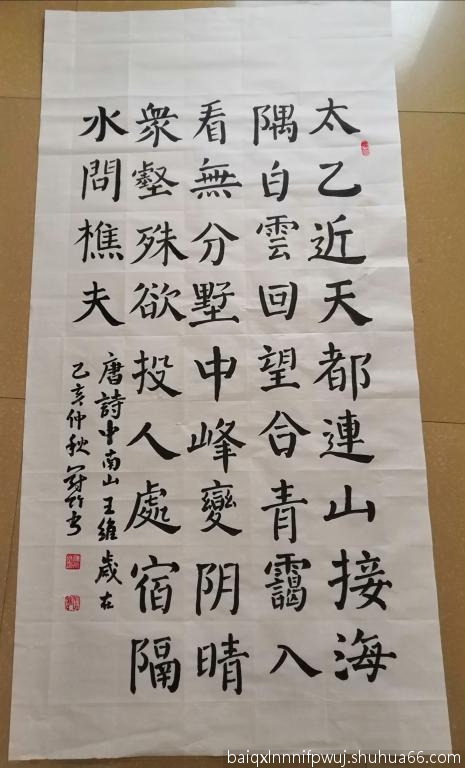 太乙近天都連山接海
隅白雲回望合青靄入
看無分墅中峰變阴晴
衆壑殊欲投人處宿隔
水問樵夫
唐詩中南山王維歲在
己亥仲秋竹书
baiqxlnnnifpwuj.shuhua66.com